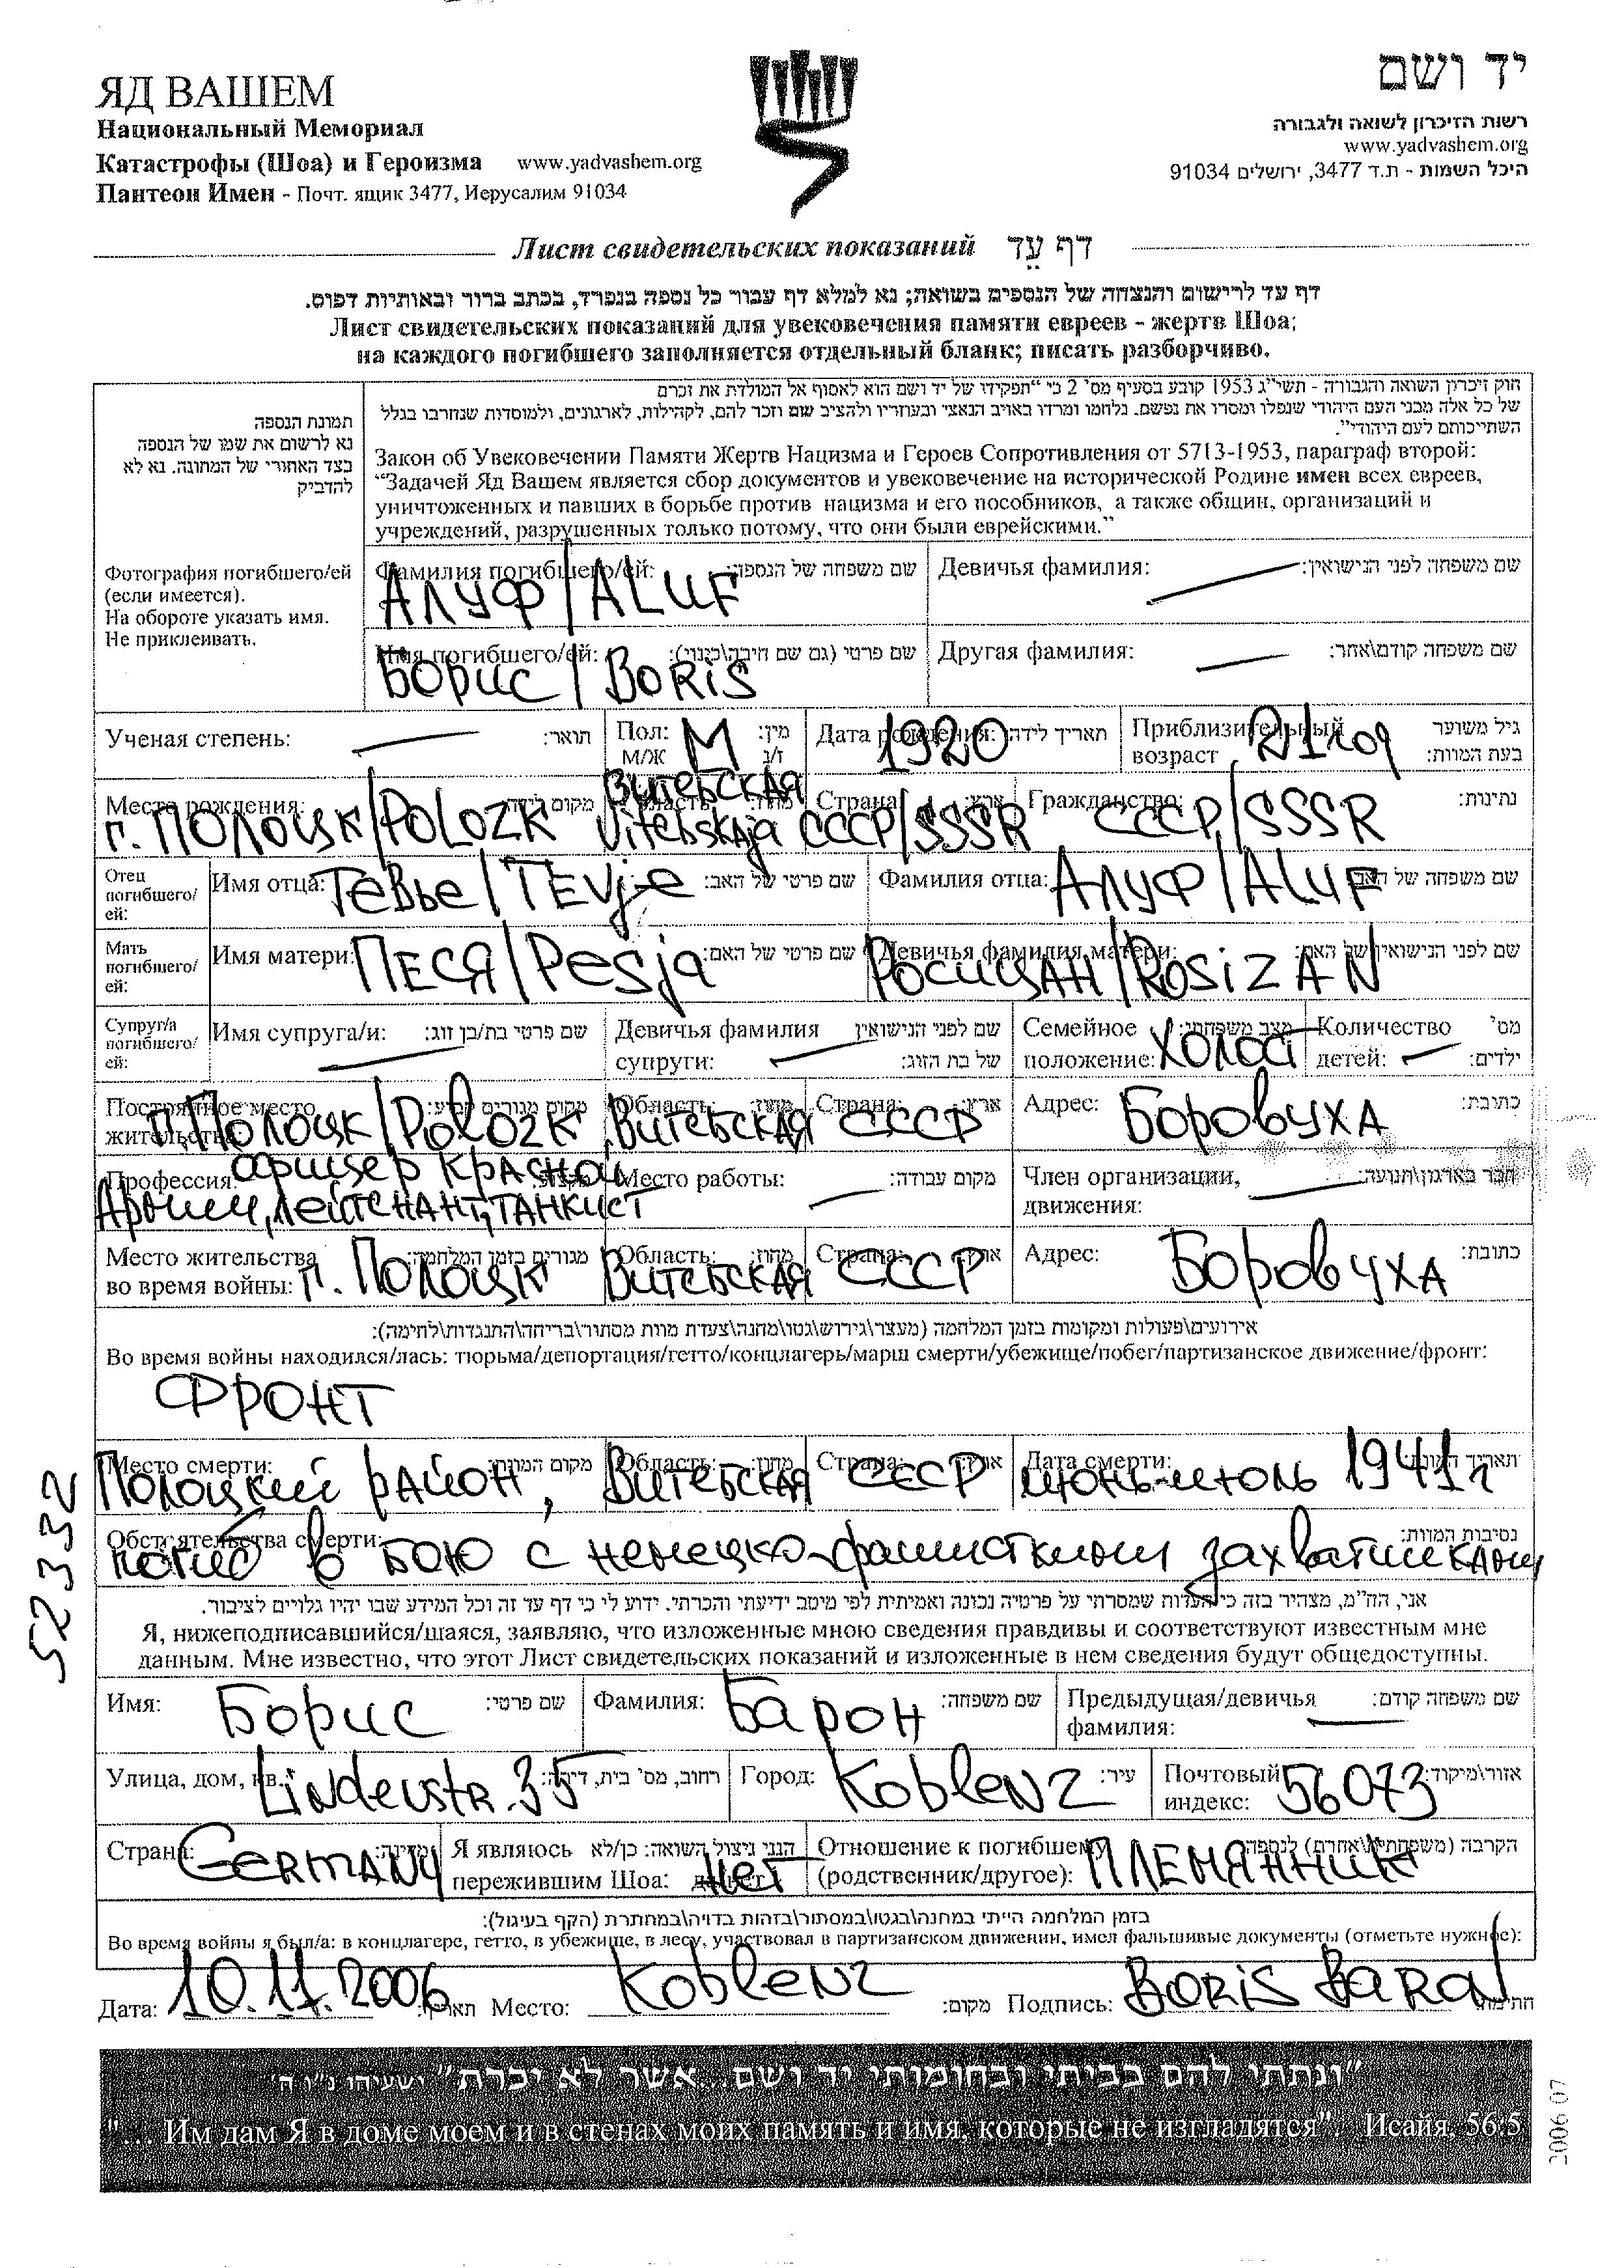 ЯД ВАШЕМ
Национальный Мемориал
Катастрофы (Шоа) и Героизма www.yadvashem.org
Пантеон Имен - Почт. ящик 3477, Иерусалим 91034
יד ושם
רשות הזיכרון לשואה ולגבורה
www.yadvashem.org
היכל השמות - ת.ד 3477, ירושלים 91034
Лист свидетельских показаний דף עֵד
דף עד לרישום והנצחה של הנספים בשואה; נא למלא דף עבור כל נספה בנפרד, בכתב ברור ובאותיות דפוס.
Лист свидетельских показаний для увековечения памяти евреев - жертв Шоа;
на каждого погибшего заполняется отдельный бланк; писать разборчиво.
תמונת הנספה
נא לרשום את שמו של הנספה
בצד האחורי של התמונה. נא לא
להדביק
Фотография погибшего/ей
(если имеется).
На обороте указать имя.
Не приклеивать.
חוק זיכרון השואה והגבורה - תשי"ג 1953 קובע בסעיף מס' 2 כי "תפקידו של יד ושם הוא לאסוף אל המולדת את זכרם
של כל אלה מבני העם היהודי שנפלו ומסרו את נפשם, נלחמו ומרדו באויב הנאצי ובעוזריו ולהציב שם וזכר להם, לקהילות, לארגונים, ולמוסדות שנחרבו בגלל
השתייכותם לעם היהודי".
Закон об Увековечении Памяти Жертв Нацизма и Героев Сопротивления от 5713-1953, параграф второй:
“Задачей Яд Вашем является сбор документов и увековечение на исторической Родине имен всех евреев,
уничтоженных и павших в борьбе против нацизма и его пособников, а также общин, организаций и
учреждений, разрушенных только потому, что они были еврейскими.”
Фамилия погибшего/ей: שם משפחה של הנספה: Девичья фамилия: שם משפחה לפני הנישואין:
Алуф/ALUF
Имя погибшего/ей: שם פרטי (גם שם חיבה\כינוי): Другая фамилия: שם משפחה קודם\אחר:
Борис/BORIS
Ученая степень: תואר: Пол: М/Ж М מין: ז/נ Дата рождения: תאריך לידה: 1920 Приблизительный возраст 21 год גיל משוער בעת המוות:
Место рождения: מקום לידה: Область: מחוז: Страна: ארץ: Гражданство: נתינות:
г. Полоцк/POLOZK Витебская Vitebskaja СССР/SSSR СССР/SSSR
Отец погибшего/ей: Имя отца: Тевье/TEVje שם פרטי של האב: Фамилия отца: Алуф/ALUF שם משפחה של האב:
Мать погибшего/ей: Имя матери: Песя/Pesja שם פרטי של האם: Девичья фамилия матери: Росицан/ROSIZAN שם לפני הנישואין של האם:
Супруг/а погибшего/ей: Имя супруга/и: שם פרטי בת/בן זוג: Девичья фамилия супруги: שם לפני הנישואין של בת הזוג: Семейное положение: холост מצב משפחתי: Количество детей: מס' ילדים:
Постоянное место жительства: מקום מגורים קבוע: Область: מחוז: Страна: ארץ: Адрес: כתובת:
г. Полоцк/Polozk, Витебская СССР Боровуха
Профессия: офицер Красной Место работы: מקום עבודה: Член организации, движения: חבר בארגון\תנועה:
Армии, лейтенант, танкист
Место жительства во время войны: מגורים בזמן המלחמה: г. Полоцк Область: מחוז: Витебская Страна: ארץ: СССР Адрес: Боровуха כתובת:
אירועים\פעולות ומקומות בזמן המלחמה (מעצר\גירוש\גטו\מחנה\צעדת מוות מסתור\בריחה\התנגדות\לחימה):
Во время войны находился/лась: тюрьма/депортация/гетто/концлагерь/марш смерти/убежище/побег/партизанское движение/фронт:
ФРОНТ
Место смерти: מקום המוות: Область: מחוז: Страна: ארץ: Дата смерти: תאריך המוות:
Полоцкий район, Витебская СССР июнь-июль 1941г
Обстоятельства смерти: נסיבות המוות:
погиб в бою с немецко-фашисткими захватчиками
אני, הח"מ, מצהיר בזה כי העדות שמסרתי על פרטיה נכונה ואמיתית לפי מיטב ידיעתי והכרתי. ידוע לי כי דף עד זה וכל המידע שבו יהיו גלויים לציבור.
Я, нижеподписавшийся/шаяся, заявляю, что изложенные мною сведения правдивы и соответствуют известным мне
данным. Мне известно, что этот Лист свидетельских показаний и изложенные в нем сведения будут общедоступны.
Имя: Борис שם פרטי: Фамилия: Барон שם משפחה: Предыдущая/девичья фамилия: שם משפחה קודם:
Улица, дом, кв.: Lindenstr. 35 רחוב, מס' בית, דירה: Город: Koblenz עיר: Почтовый индекс: 56073 אזור\מיקוד:
Страна: Germany מדינה: Я являюсь пережившим Шоа: да/нет нет הנני ניצול השואה: כן/לא Отношение к погибшему (родственник/другое): племянник הקרבה (משפחתית\אחרת) לנספה:
בזמן המלחמה הייתי במחנה\בגטו\במסתור\בזהות בדויה\במחתרת (הקף בעיגול):
Во время войны я был/а: в концлагере, гетто, в убежище, в лесу, участвовал в партизанском движении, имел фальшивые документы (отметьте нужное):
Дата: 10.11.2006 תאריך: Место: Koblenz מקום: Подпись: Boris Baron חתימה:
"ונתתי להם בביתי ובחומותי יד ושם...אשר לא יכרת" ישעיהו נ"ו ה'
"... Им дам Я в доме моем и в стенах моих память и имя, которые не изгладятся". Исайя, 56:5
52332
2006 07